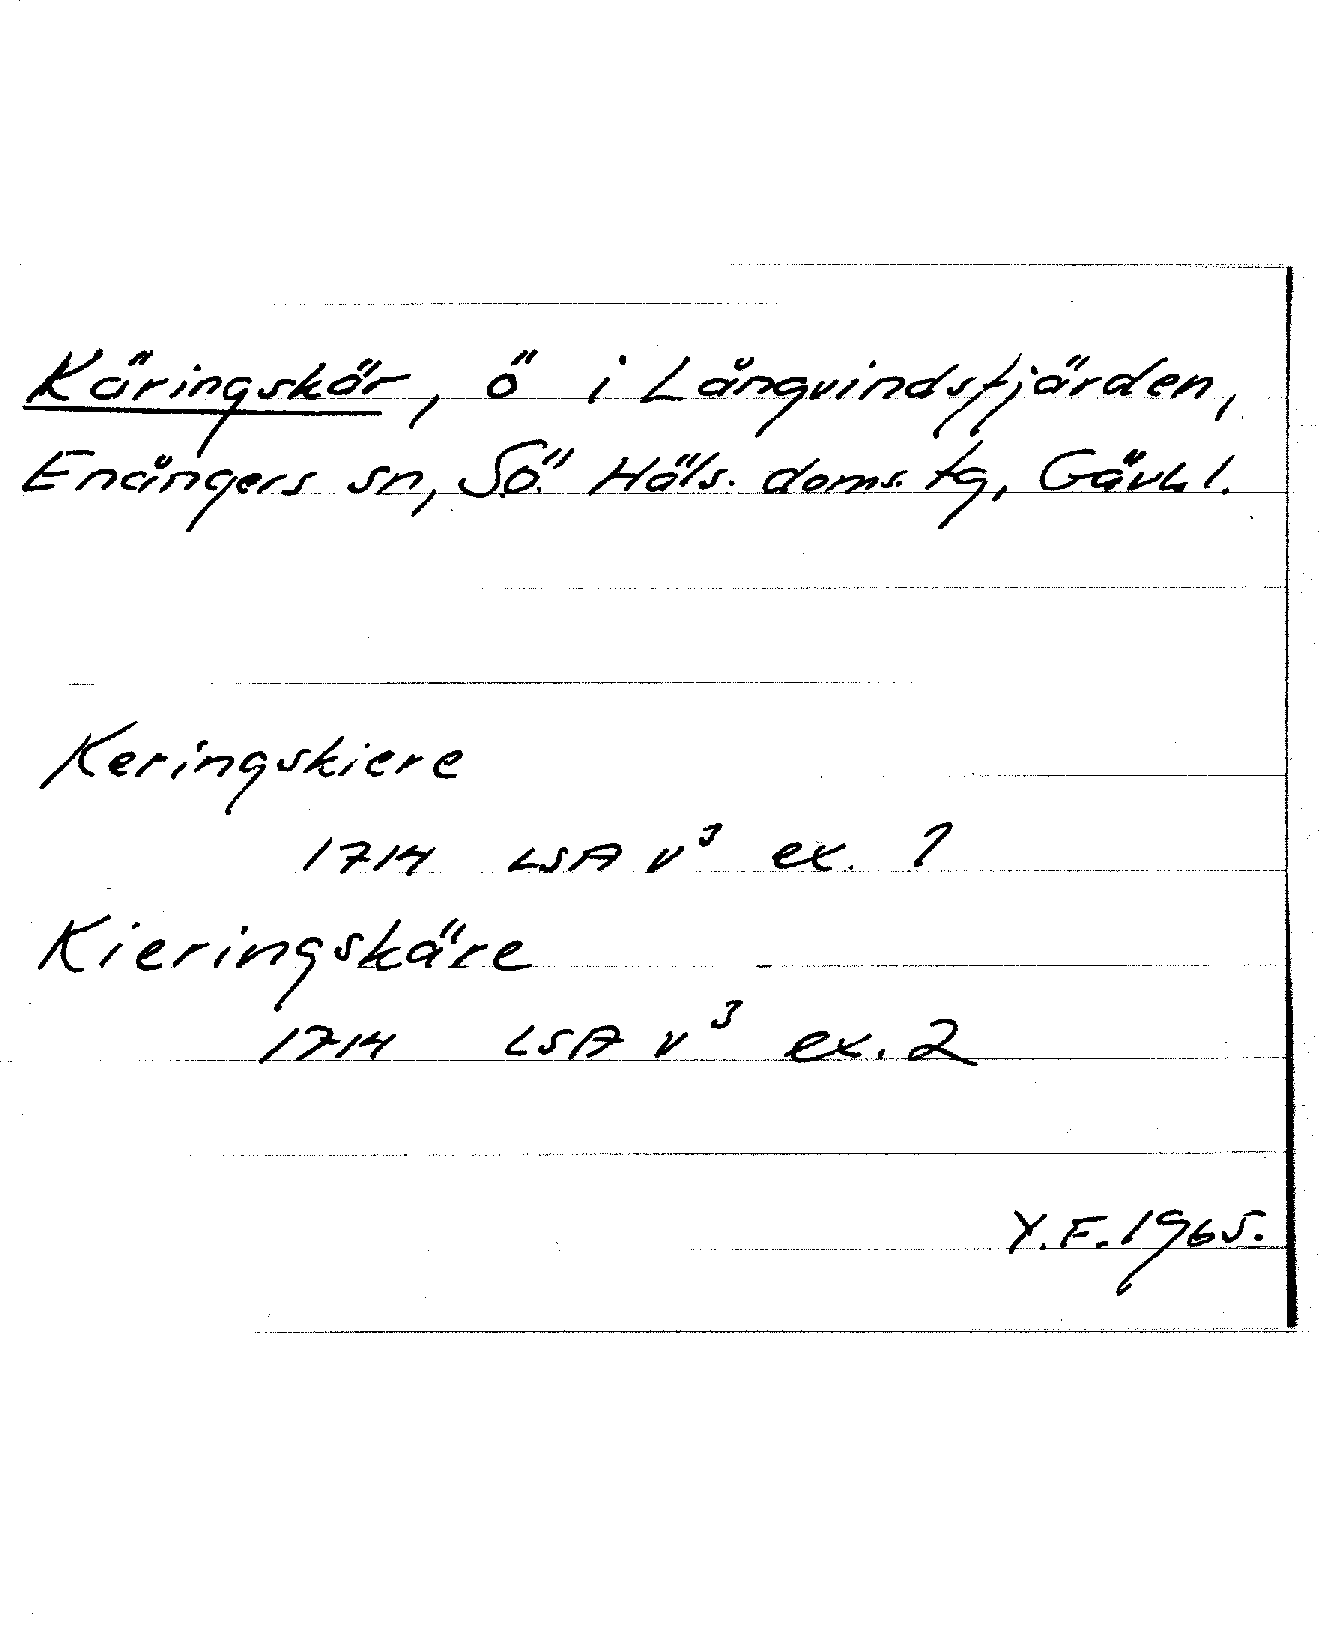 Käringskär, ö i Långvindsfjärden,
Enångers sn, Sö. Häls. doms. tg, Gävl. l.
Keringskiere
1714 LSA v³ ex. 1
Kieringskäre
1714 LSA v³ ex. 2
Y.F. 1965.